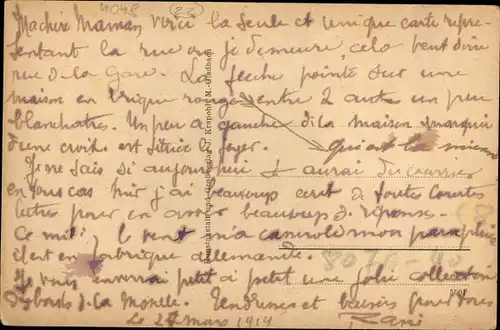 4048 (22)
Ma chère Maman voici la seule et unique carte repré-
sentant la rue où je demeure, cela veut dire
rue de la Gare. La flèche pointe sur une
maison en brique rouge entre 2 autres un peu
blanchâtres. Un peu à gauche de la maison marquée
d'une croix est située le foyer. qui est la mienne
Je ne sais si aujourd'hui j'aurai du courrier
en tous cas hier j'ai beaucoup écrit de toutes courtes
lettres pour en avoir beaucoup de réponse.
Ce midi le vent m'a cassé mon parapluie
il est en fabrique allemande.
Je vous enverrai petit à petit une jolie collection
des bords de la Moselle. Tendresses et baisers pour tous
Le 27 mars 1919
Kunstanstalt und Krapohl, M.-Gladbach